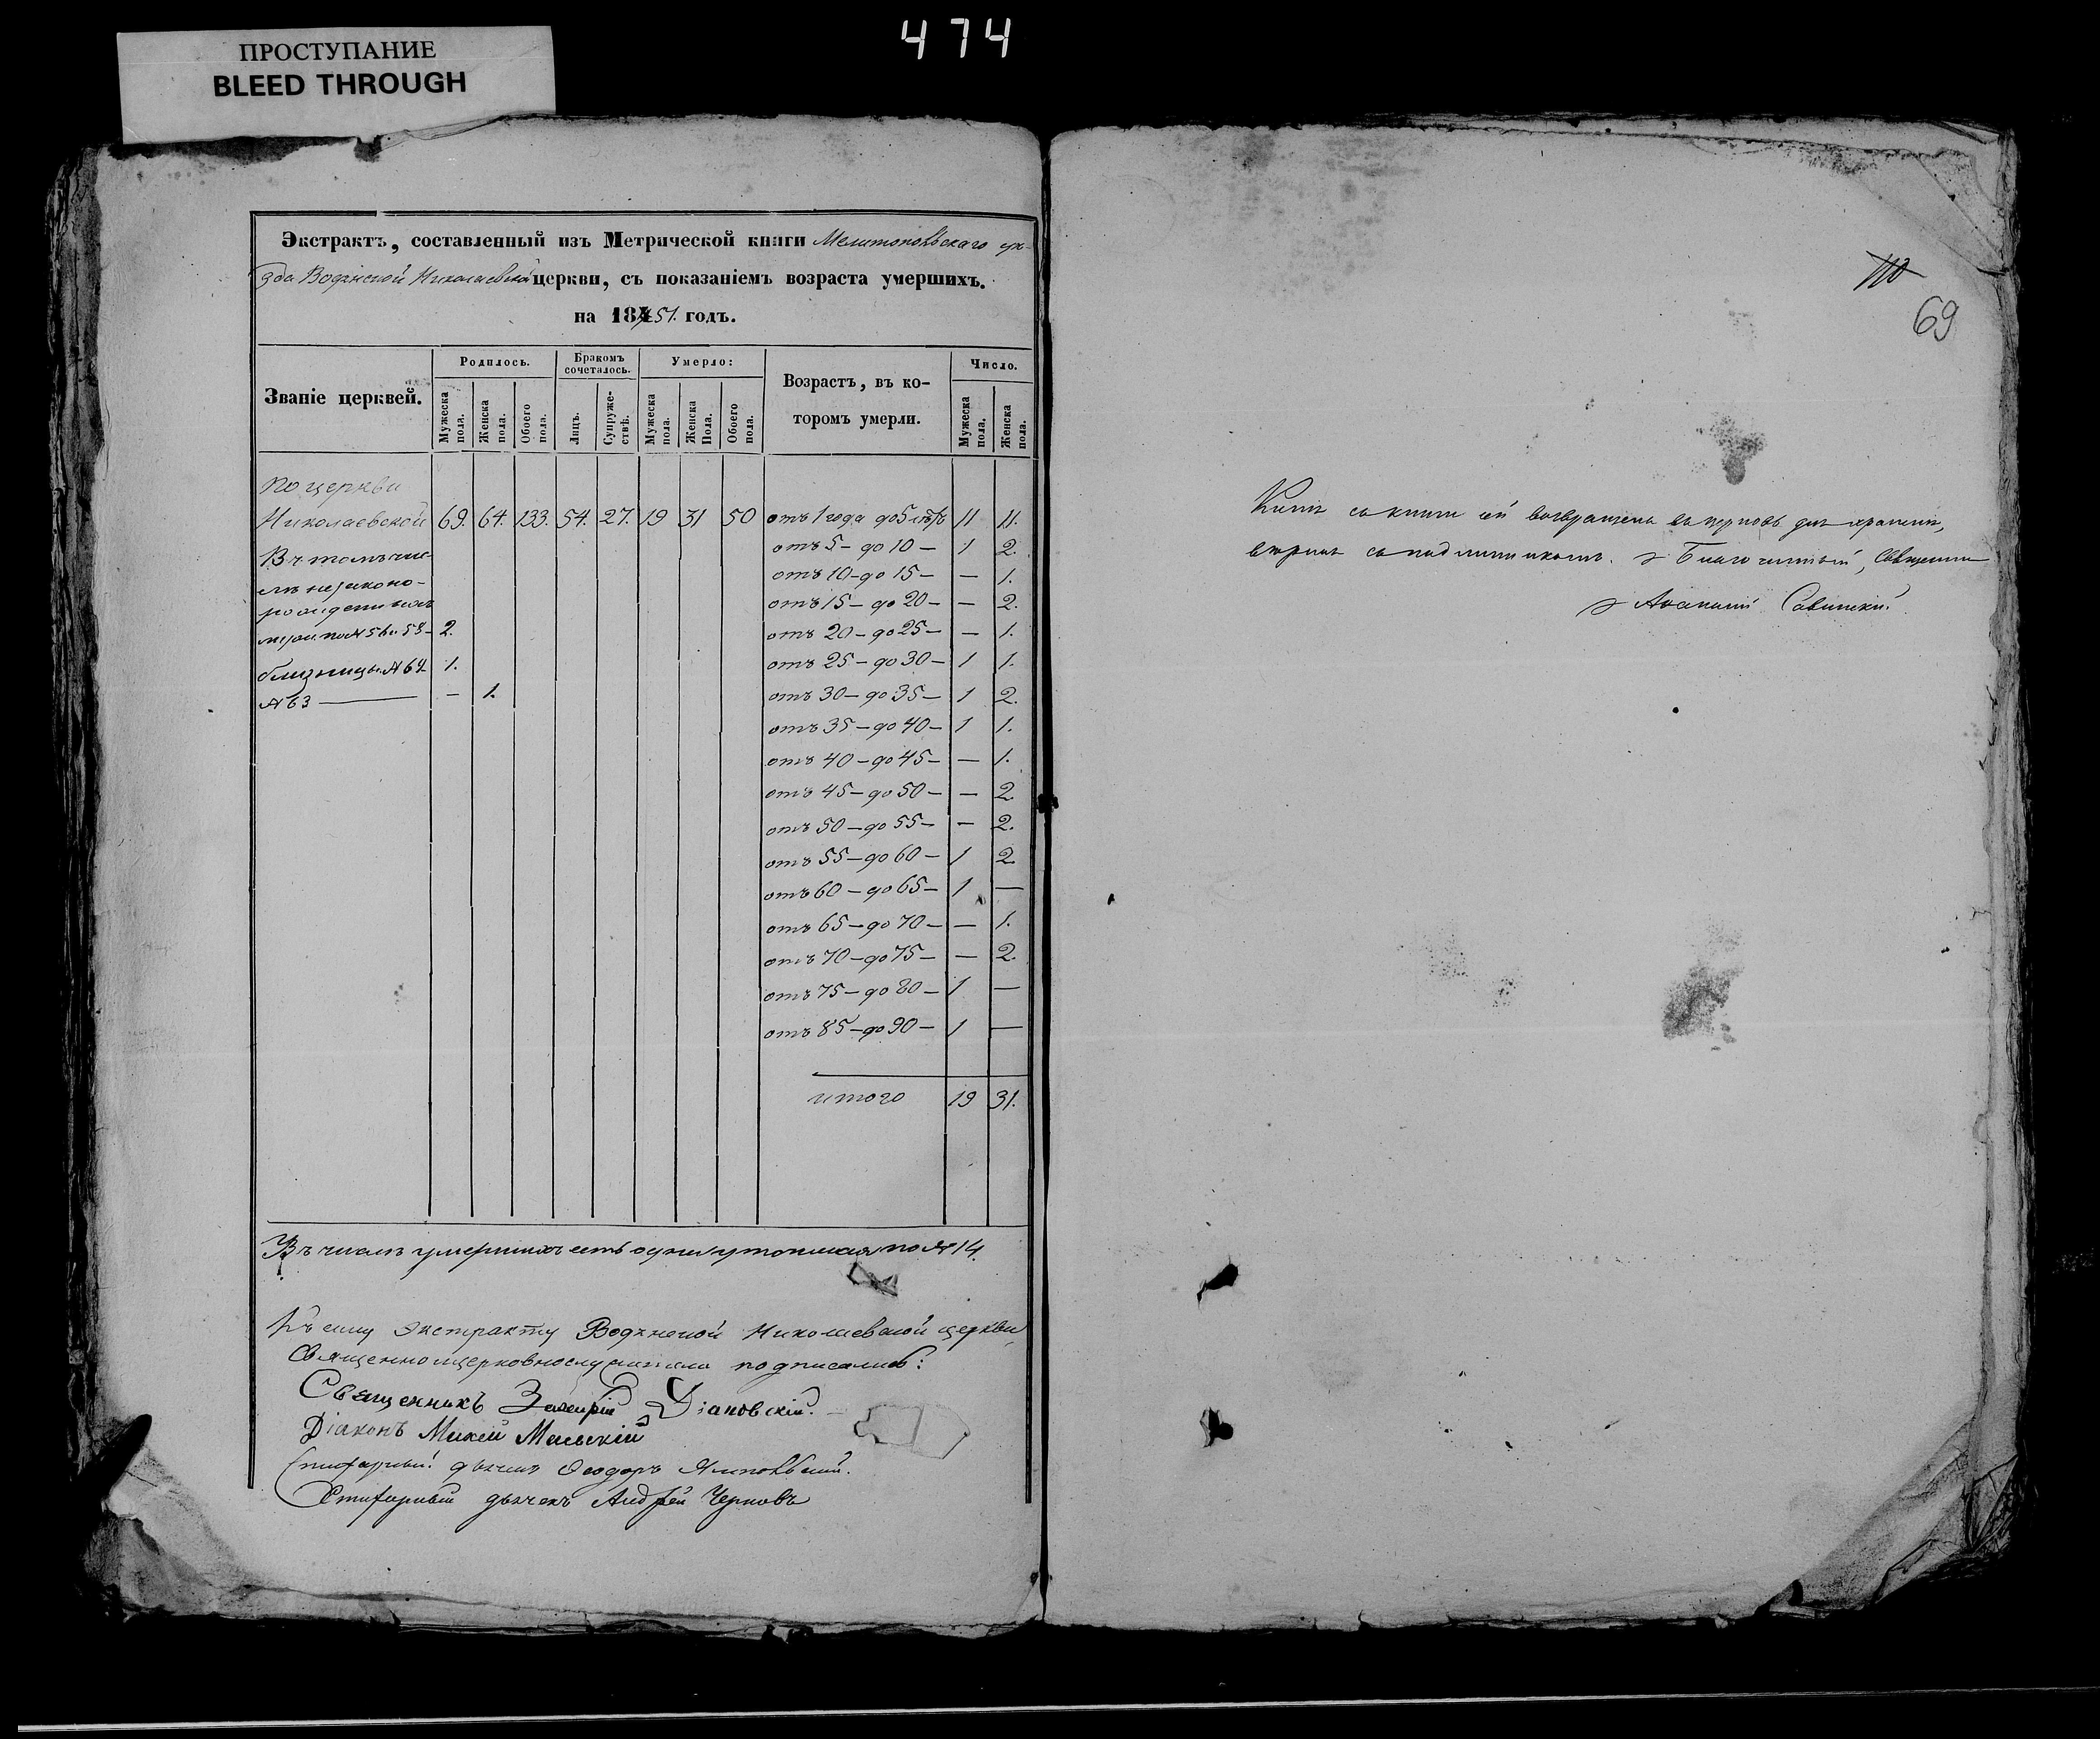 ПРОСТУПАНИЕ
BLEED THROUGH
474
Экстрактъ, составленный изъ Метрической книги Мелитопольскаго уѣ-
зда Водянской Николаевской церкви, съ показаніемъ возраста умершихъ.
на 1851. годъ.
Званіе церквей. Родилось. Бракомъ сочеталось. Умерло: Возрастъ, въ ко-тором умерли. Число.
Мужеска пола. Женска пола. Обоего пола. Лицъ. Супруже-ствъ. Мужеска пола. Женска Пола. Обоего пола. Мужеска пола. Женска пола.
По церкви
Николаевской 69. 64. 133. 54. 27. 19 31 50 отъ 1 года до 5 лѣтъ 11 11.
отъ 5 – до 10 – 1 2.
Въ томъ чис-
отъ 10 – до 15 – — 1.
лѣ незаконо-
отъ 15 – до 20 – — 2.
рожденныхъ
муж. по № 56 и 58 – 2. отъ 20 – до 25 – — 1.
близнецы № 64 1. отъ 25 – до 30 – 1 1.
№ 63 — – 1. отъ 30 – до 35 – 1 2.
отъ 35 – до 40 – 1 1.
отъ 40 – до 45 – — 1.
отъ 45 – до 50 – — 2.
отъ 50 – до 55 – — 2.
отъ 55 – до 60 – 1 2.
отъ 60 – до 65 – 1 —
отъ 65 – до 70 – — 1.
отъ 70 – до 75 – — 2.
отъ 75 – до 80 – 1 —
отъ 85 – до 90 – 1 —
итого 19 31.
Въ числѣ умершихъ есть одна утопшая по № 14.
Къ сему экстракту Водянской Николаевской церкви
Священноцерковнослужители подписались:
Священникъ Захарій Діановскій.
Діаконъ Михей
Стихарный дьячекъ Ѳеодоръ
Стихарный дьячекъ Андрей Черновъ
110
69
Копія съ книги сей возвращена въ церковь для храненія,
вѣрна съ подлинникомъ. Благочинный, Священникъ
Савинскій.